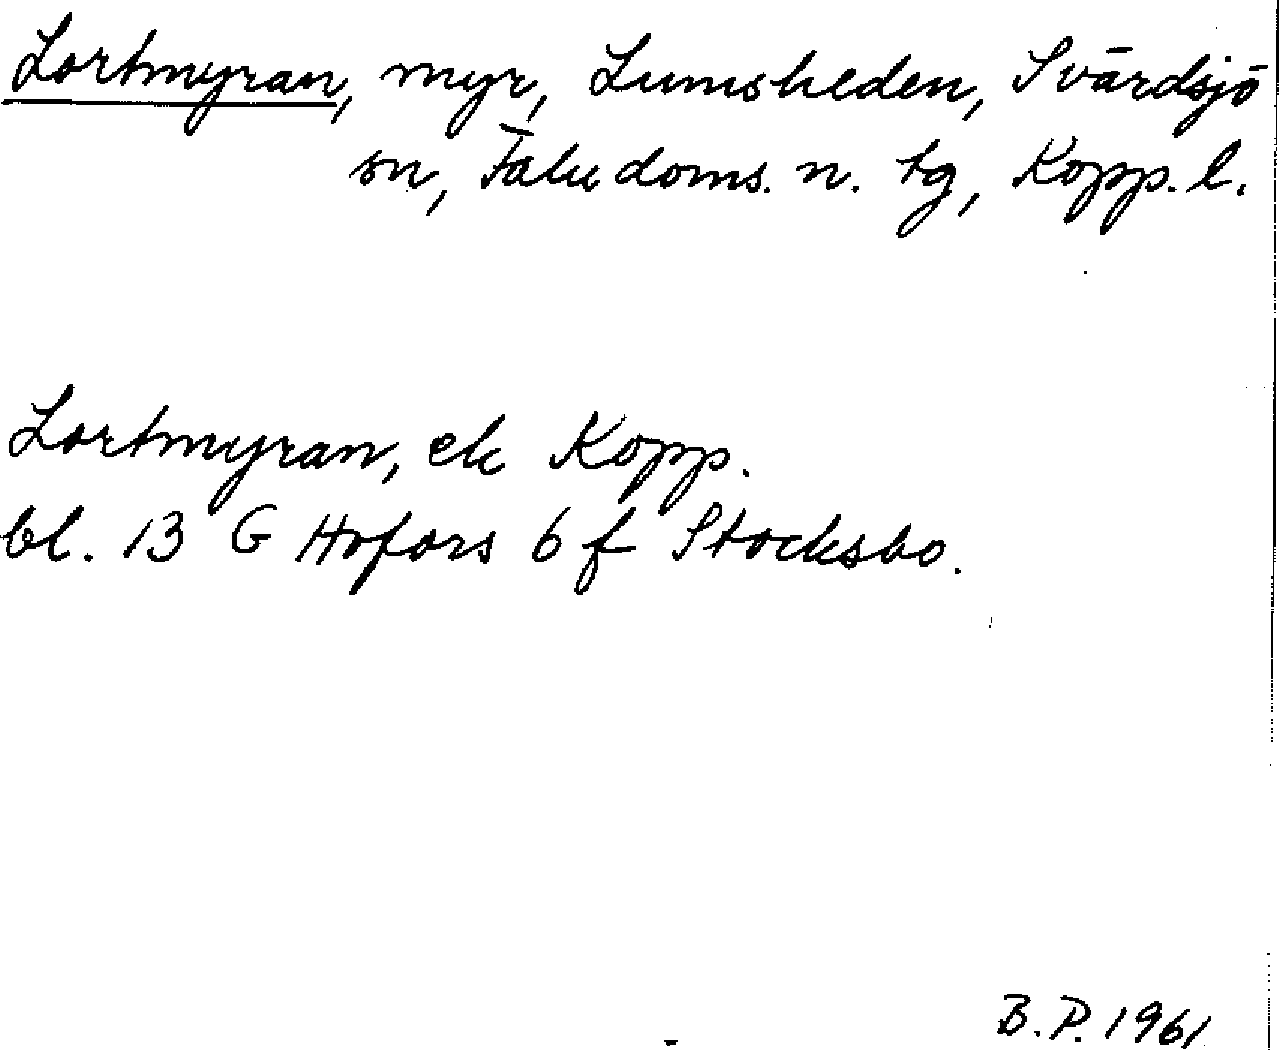 Lortmyran, myr, Lumsheden, Svärdsjö
sn, Falu doms. n. tg, Kopp. l.
Lortmyran, ek Kopp.
bl. 13 G Hofors 6 f Stocksbo.
B.P. 1961